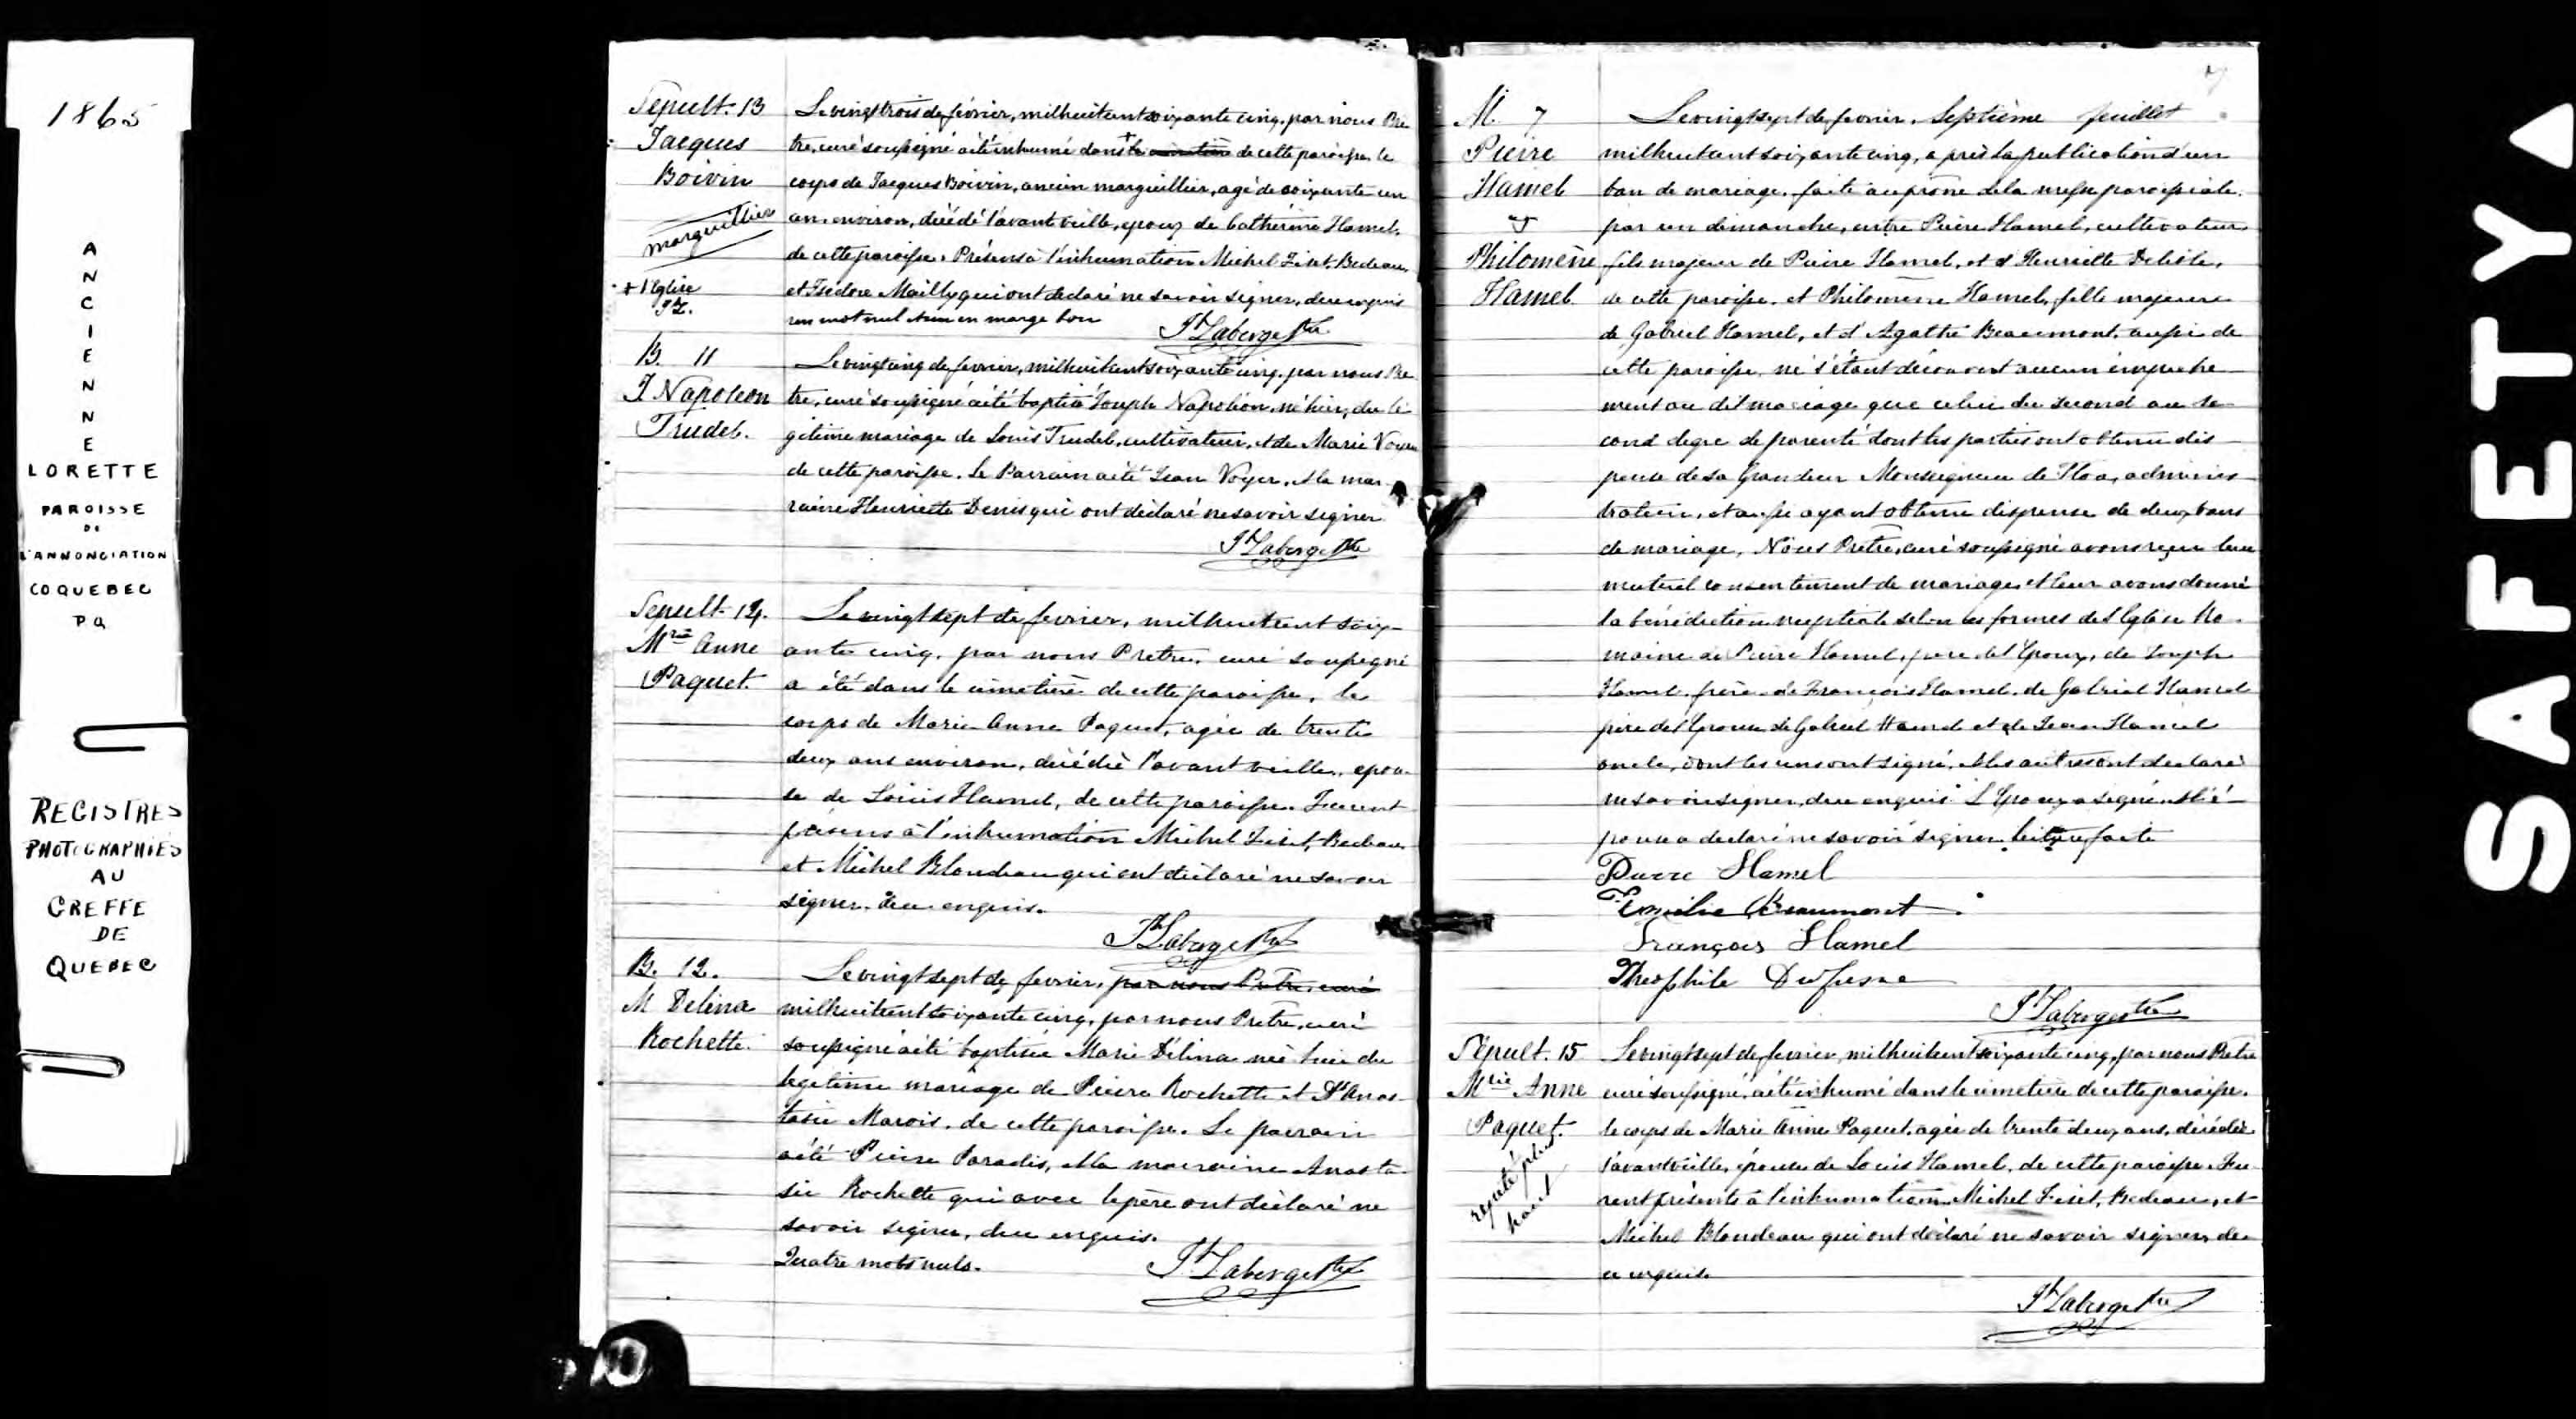 1865
ANCIENNE
LORETTE
PAROISSE
DE
L'ANNONCIATION
CO QUEBEC
PQ
REGISTRES
PHOTOGRAPHIÉS
AU
GREFFE
DE
QUEBEC
Sepult. 13
Jacques
Boivin
marguillier
+ l'Eglise
Le vingt trois de février, mil huit cent soixante cinq, par nous Prê
tre, curé soussigné a été inhumé dans + le cimetière de cette paroisse, le
corps de Jacques Boivin, ancien marguillier, agé de soixante un
an environ, décédé l'avant veille, epoux de Catherine Hamel,
de cette paroisse. Présens à l'inhumation Michel Fiset, Bedeau,
et Isidore Mailly qui ont declaré ne savoir signer, de ce requis
un mot nul et un en marge bon
Jh Laberge Ptre
B. 11
J Napoleon
Trudel.
Le vingt cinq de fevrier, mil huit cent soixante cinq, par nous Prê
tre, curé soussigné a été baptisé Joseph Napoléon, né hier, du lé
gitime mariage de Louis Trudel, cultivateur, et de Marie Voyer
de cette paroisse. Le Parrain a été Jean Voyer, et la mar
raine Henriette Denis qui ont déclaré ne savoir signer
Jh Laberge Ptre
Sepult. 14.
Mrie Anne
Paquet.
Le vingt sept de fevrier, mil huit cent soix-
ante cinq, par nous Pretre, curé soussigné
a été dans le cimetière de cette paroisse, le
corps de Marie Anne Paquet, agée de trente
deux ans environ, décédée l'avant veille, epou
se de Louis Hamel, de cette paroisse. Furent
présens à l'inhumation Michel Fiset, Bedeau
et Michel Blondeau qui ont déclaré ne savoir
signer. de ce enquis.
Jh Laberge Ptre
B. 12.
M Delina
Rochette.
Le vingt sept de fevrier, par nous Pretre, curé
mil huit cent soixante cinq, par nous Pretre, curé
soussigné a été baptisée Marie Délina née hier du
legitime mariage de Pierre Rochette et d'Anas-
tasie Marois, de cette paroisse. Le parrain
a été Pierre Paradis, et la marraine Anasta-
sie Rochette qui avec le père ont déclaré ne
savoir signer, de ce enquis.
Quatre mots nuls.
Jh Laberge Ptre
7
M. 7
Pierre
Hamel
&
Philomène
Hamel
Le vingt sept de fevrier, Septième feuillet
mil huit cent soixante cinq, après la publication d'un
ban de mariage, faite au prône de la messe paroissiale,
par un dimanche, entre Pierre Hamel, cultivateur
fils majeur de Pierre Hamel, et d'Henriette Delisle,
de cette paroisse, et Philomène Hamel, fille majeure
de Gabriel Hamel, et d'Agathe Beaumont, aussi de
cette paroisse, ne s'étant découvert aucun empeche
ment au dit mariage que celui du second au se
cond degre de parenté dont les parties ont obtenu dis
pense de sa Grandeur Monseigneur de Tloa, adminis
trateur, et aussi ayant obtenu dispense de deux bans
de mariage, Nous Pretre, curé soussigné avons reçu leur
mutuel consentement de mariage et leur avons donné
la bénédiction nuptiale selon les formes de l'Eglise Ro-
maine de Pierre Hamel, pere de l'Epoux, de Joseph
Hamel, frère de François Hamel, de Gabriel Hamel
père de l'Epouse de Gabriel Hamel et de Jean Hamel
oncle, dont les uns ont signé, et les autres ont declaré
ne savoir signer, de ce enquis. L'Epoux a signé et l'é-
pouse a declaré ne savoir signer. lecture faite
Pierre Hamel
Emélie Beaumont
François Hamel
Théophile Dufresne
Jh Laberge Ptre
Sépult. 15
Mrie Anne
Paquet.
repeté plus
haut
Le vingt sept de fevrier, mil huit cent soixante cinq, par nous Pretre
curé soussigné, a été inhumé dans le cimetière de cette paroisse,
le corps de Marie Anne Paquet, agée de trente deux ans, décédée
l'avant veille, épouse de Louis Hamel, de cette paroisse. Fu
rent présents à l'inhumation Michel Fiset, Bedeau, et
Michel Blondeau qui ont déclaré ne savoir signer, de
ce enquis.
Jh Laberge Ptre
SAFETY